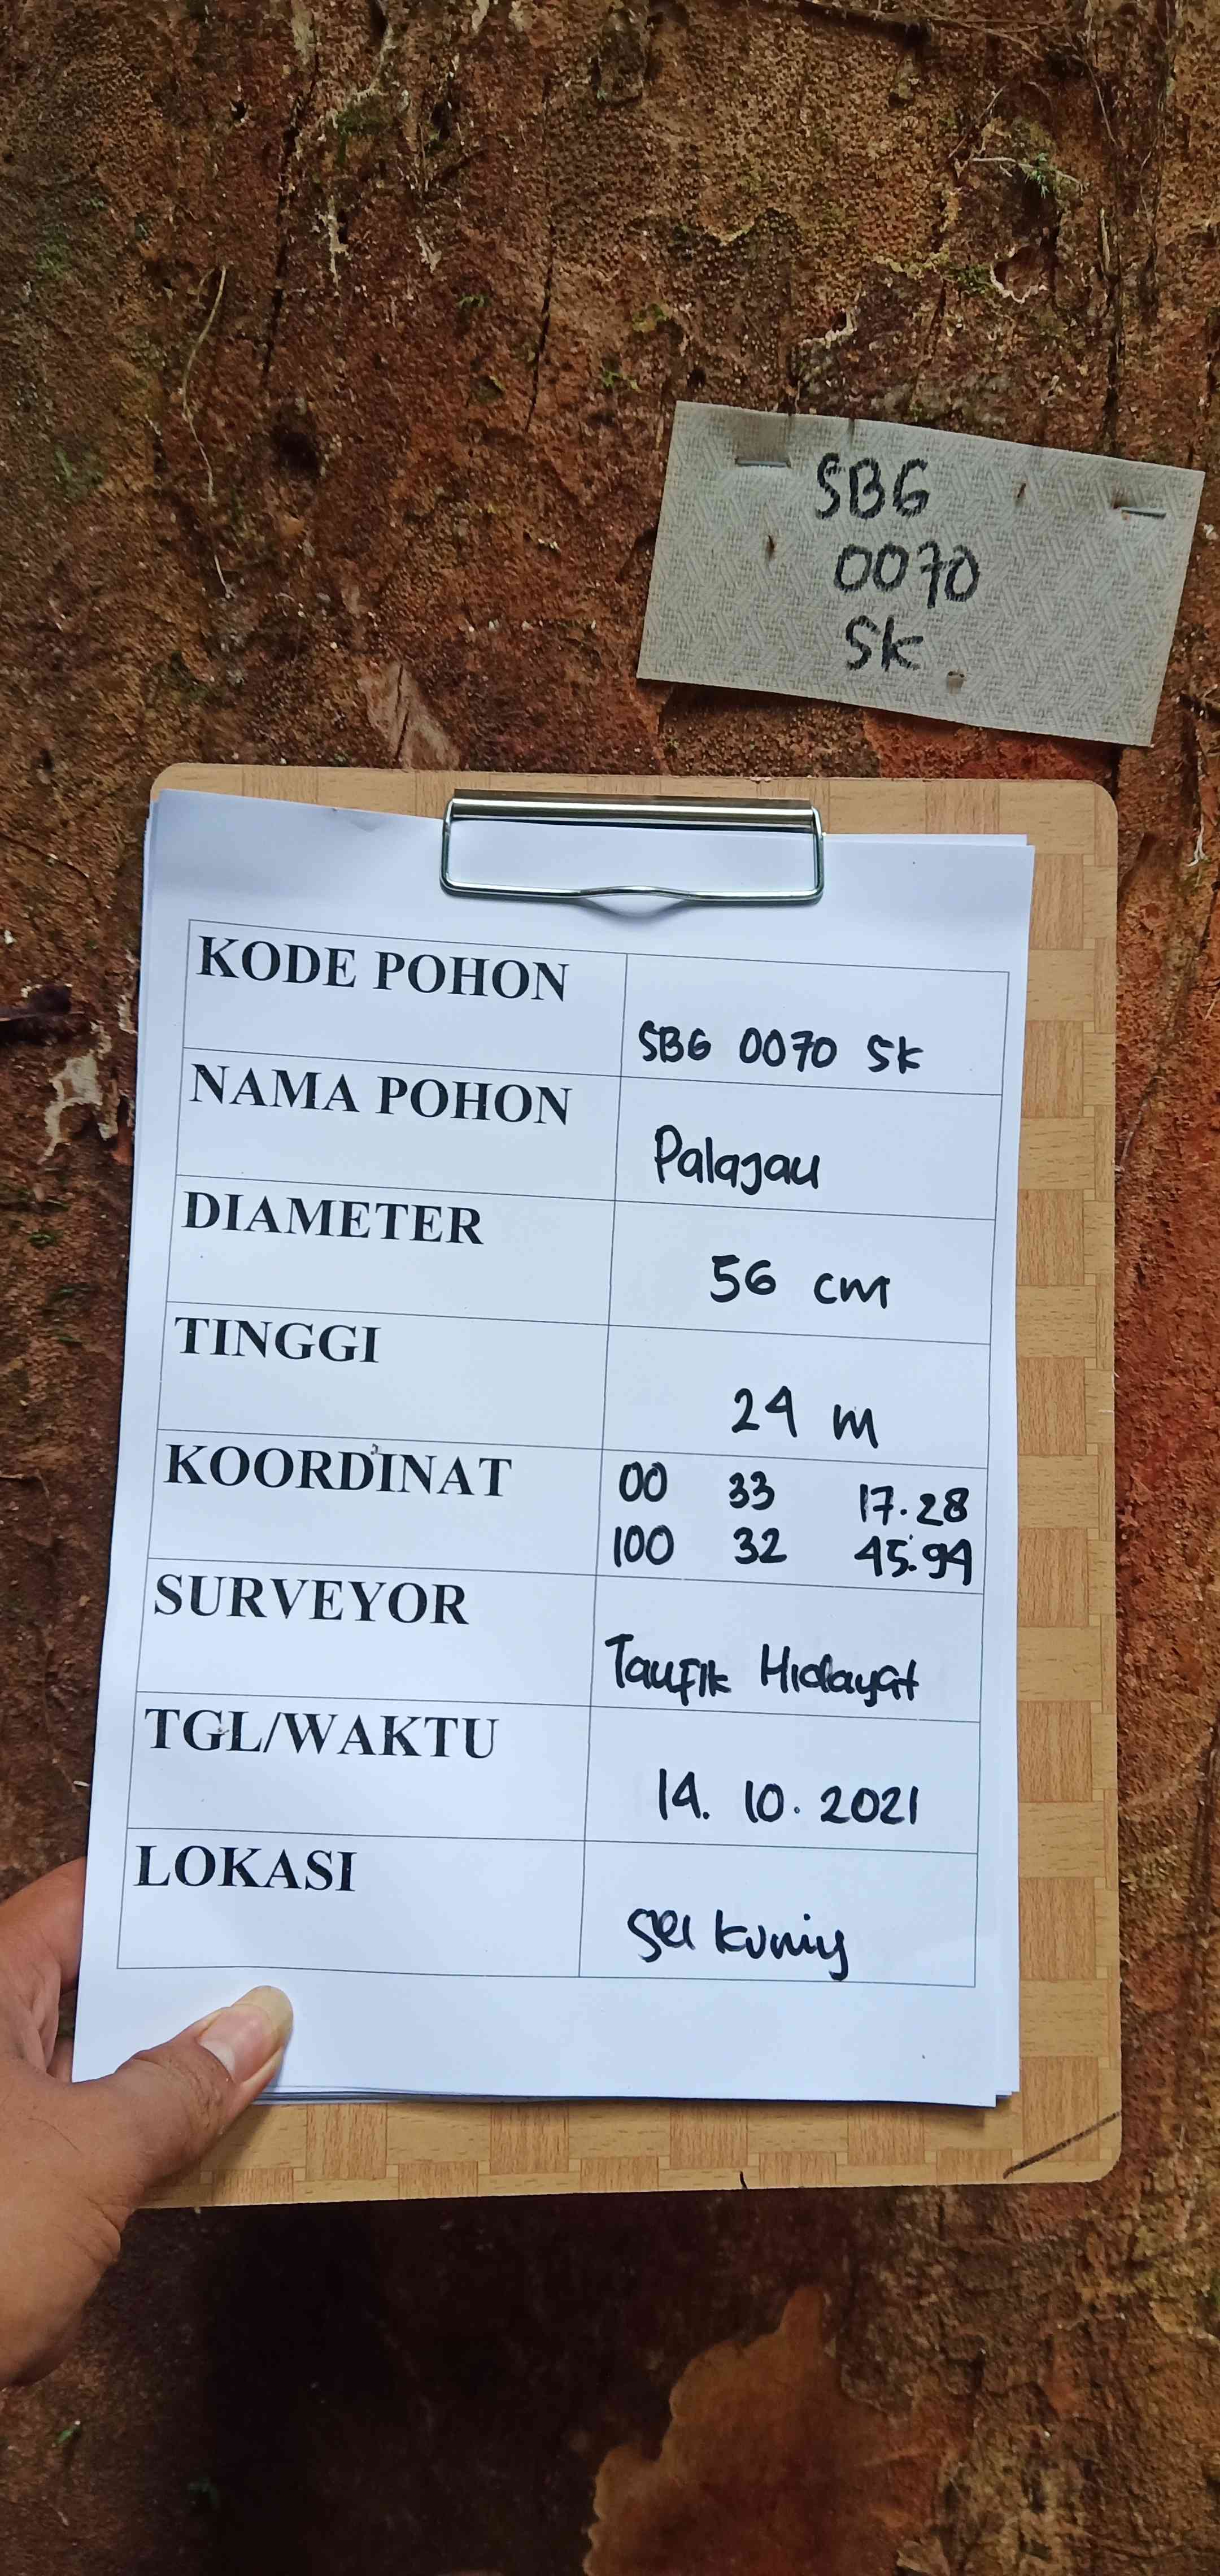 SBG
0070
SK
KODE POHON
SBG 0070 SK
NAMA POHON
Palajau
DIAMETER
56 cm
TINGGI
24 m
KOORDINAT
00 33 17.28
100 32 45.94
SURVEYOR
Taufik Hidayat
TGL/WAKTU
14. 10. 2021
LOKASI
Sei Kuniy